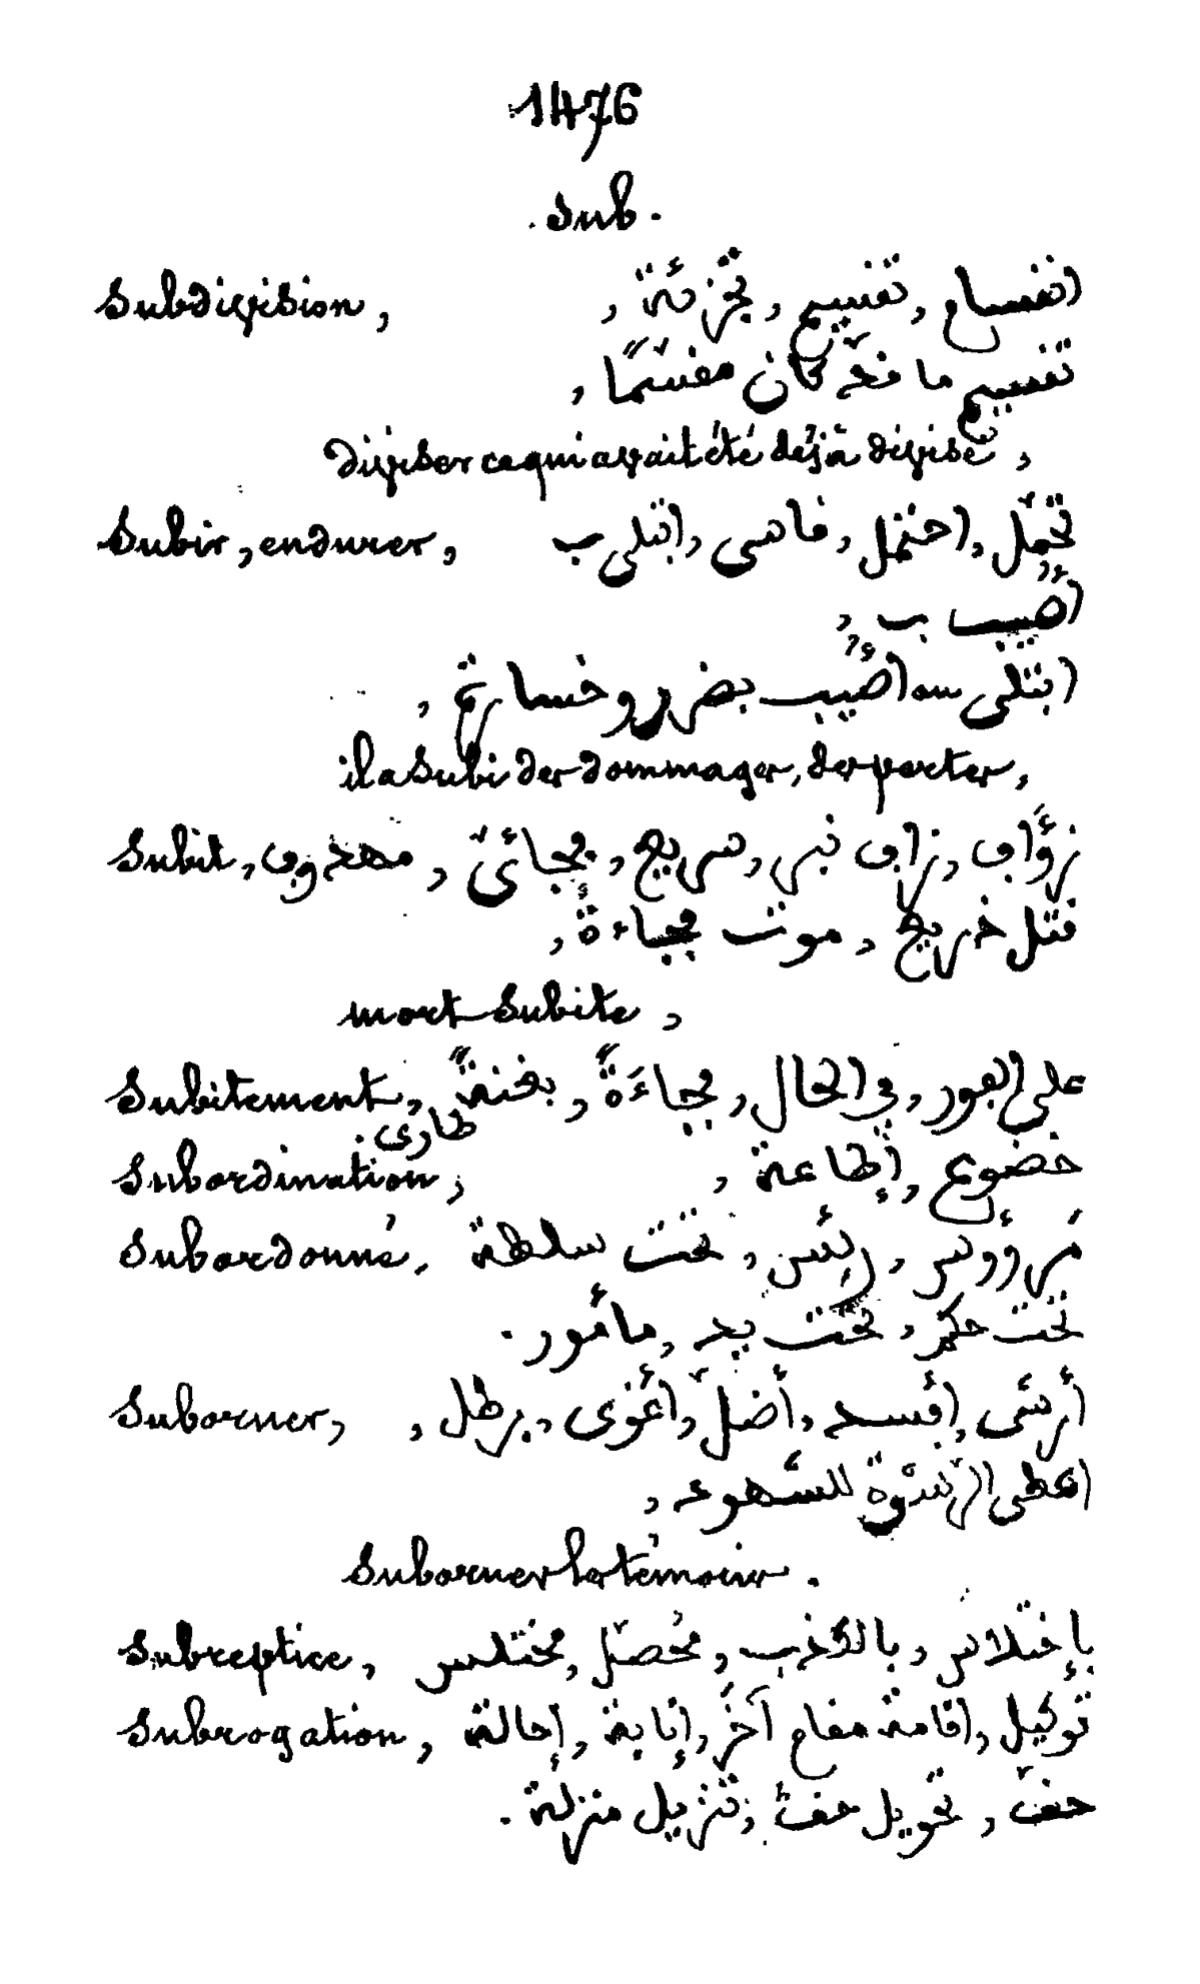 1476
. Sub .
Subdivision, انقسام, تقسيم, تجزئة,
تقسيم ما قد كان مقسّمًا,
diviser ce qui avait été déjà divisé,
Subir, endurer, تحمّل, احتمل, قاسى, ابتلى ب
أُصيب ب,
ابتلى ou أُصيب بضرر وخسارة,
il a subi des dommages, des pertes,
Subit, زؤاف, زاف, سريع, فجائىّ,
قتل ذريع, موت فجاءة,
mort subite,
Subitement, على الفور, في الحال, فجاءَةً, بغتةً,
طارئ.
Subordination, خضوع, إطاعة,
Subordonné, مَرؤوس, تحت سلطة
تحت حكم, تحت يد, مأمور.
Suborner, أرشى, أفسد, أضلّ, أغوى, برطل,
اعطى الرَّشوة للشّهود,
Suborner les témoins.
Subreptice, بإختلاس, بالكذب, مُحصّل, مختلس
Subrogation, توكيل, اقامة مقام آخَرَ, إنابة, إحالة
حقّ, تحويل حقّ, تنزيل منزلة.